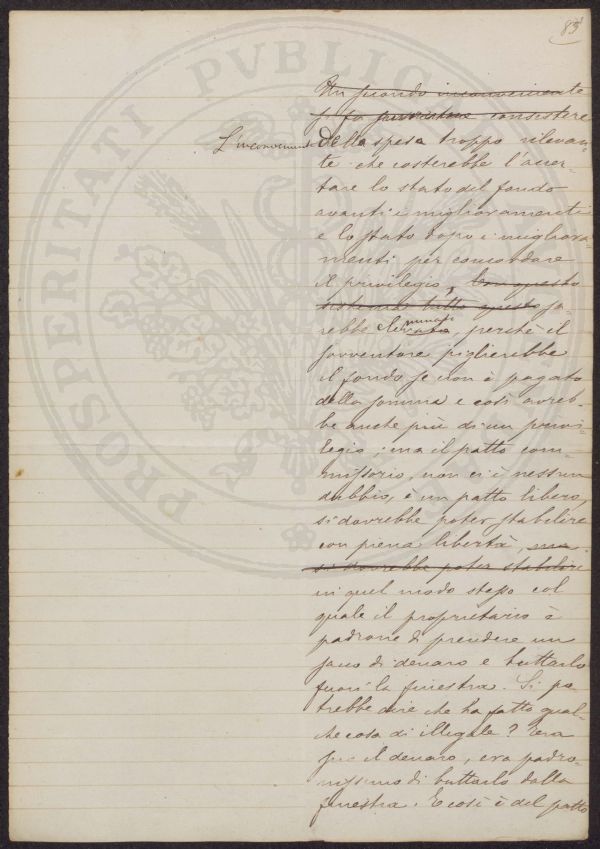 83
PROSPERITATI PVBLICAE
L'inconveniente
Un grando inconveniente
si fa consistere
della spesa troppo rilevan-
te che costerebbe l'accer-
tare lo stato del fondo
avanti i miglioramenti
e lo stato dopo i migliora-
menti per concordare
il privilegio, Con questo
sistema tutto questo sa-
rebbe eliminato, perchè il
sovventore piglierebbe
il fondo se non è pagato
della somma e così avreb-
be anche più di un privi-
legio; ma il patto com-
missorio, non ci è nessun
dubbio, è un patto libero,
si dovrebbe poter stabilire
con piena libertà, ma
si dovrebbe poter stabilire
in quel modo stesso col
quale il proprietario è
padrone di prendere un
sacco di denaro e buttarlo
fuori la finestra. Si po-
trebbe dire che ha fatto qual-
che cosa di illegale? Era
suo il denaro, era padro-
nissimo di buttarlo dalla
finestra. E così è del patto